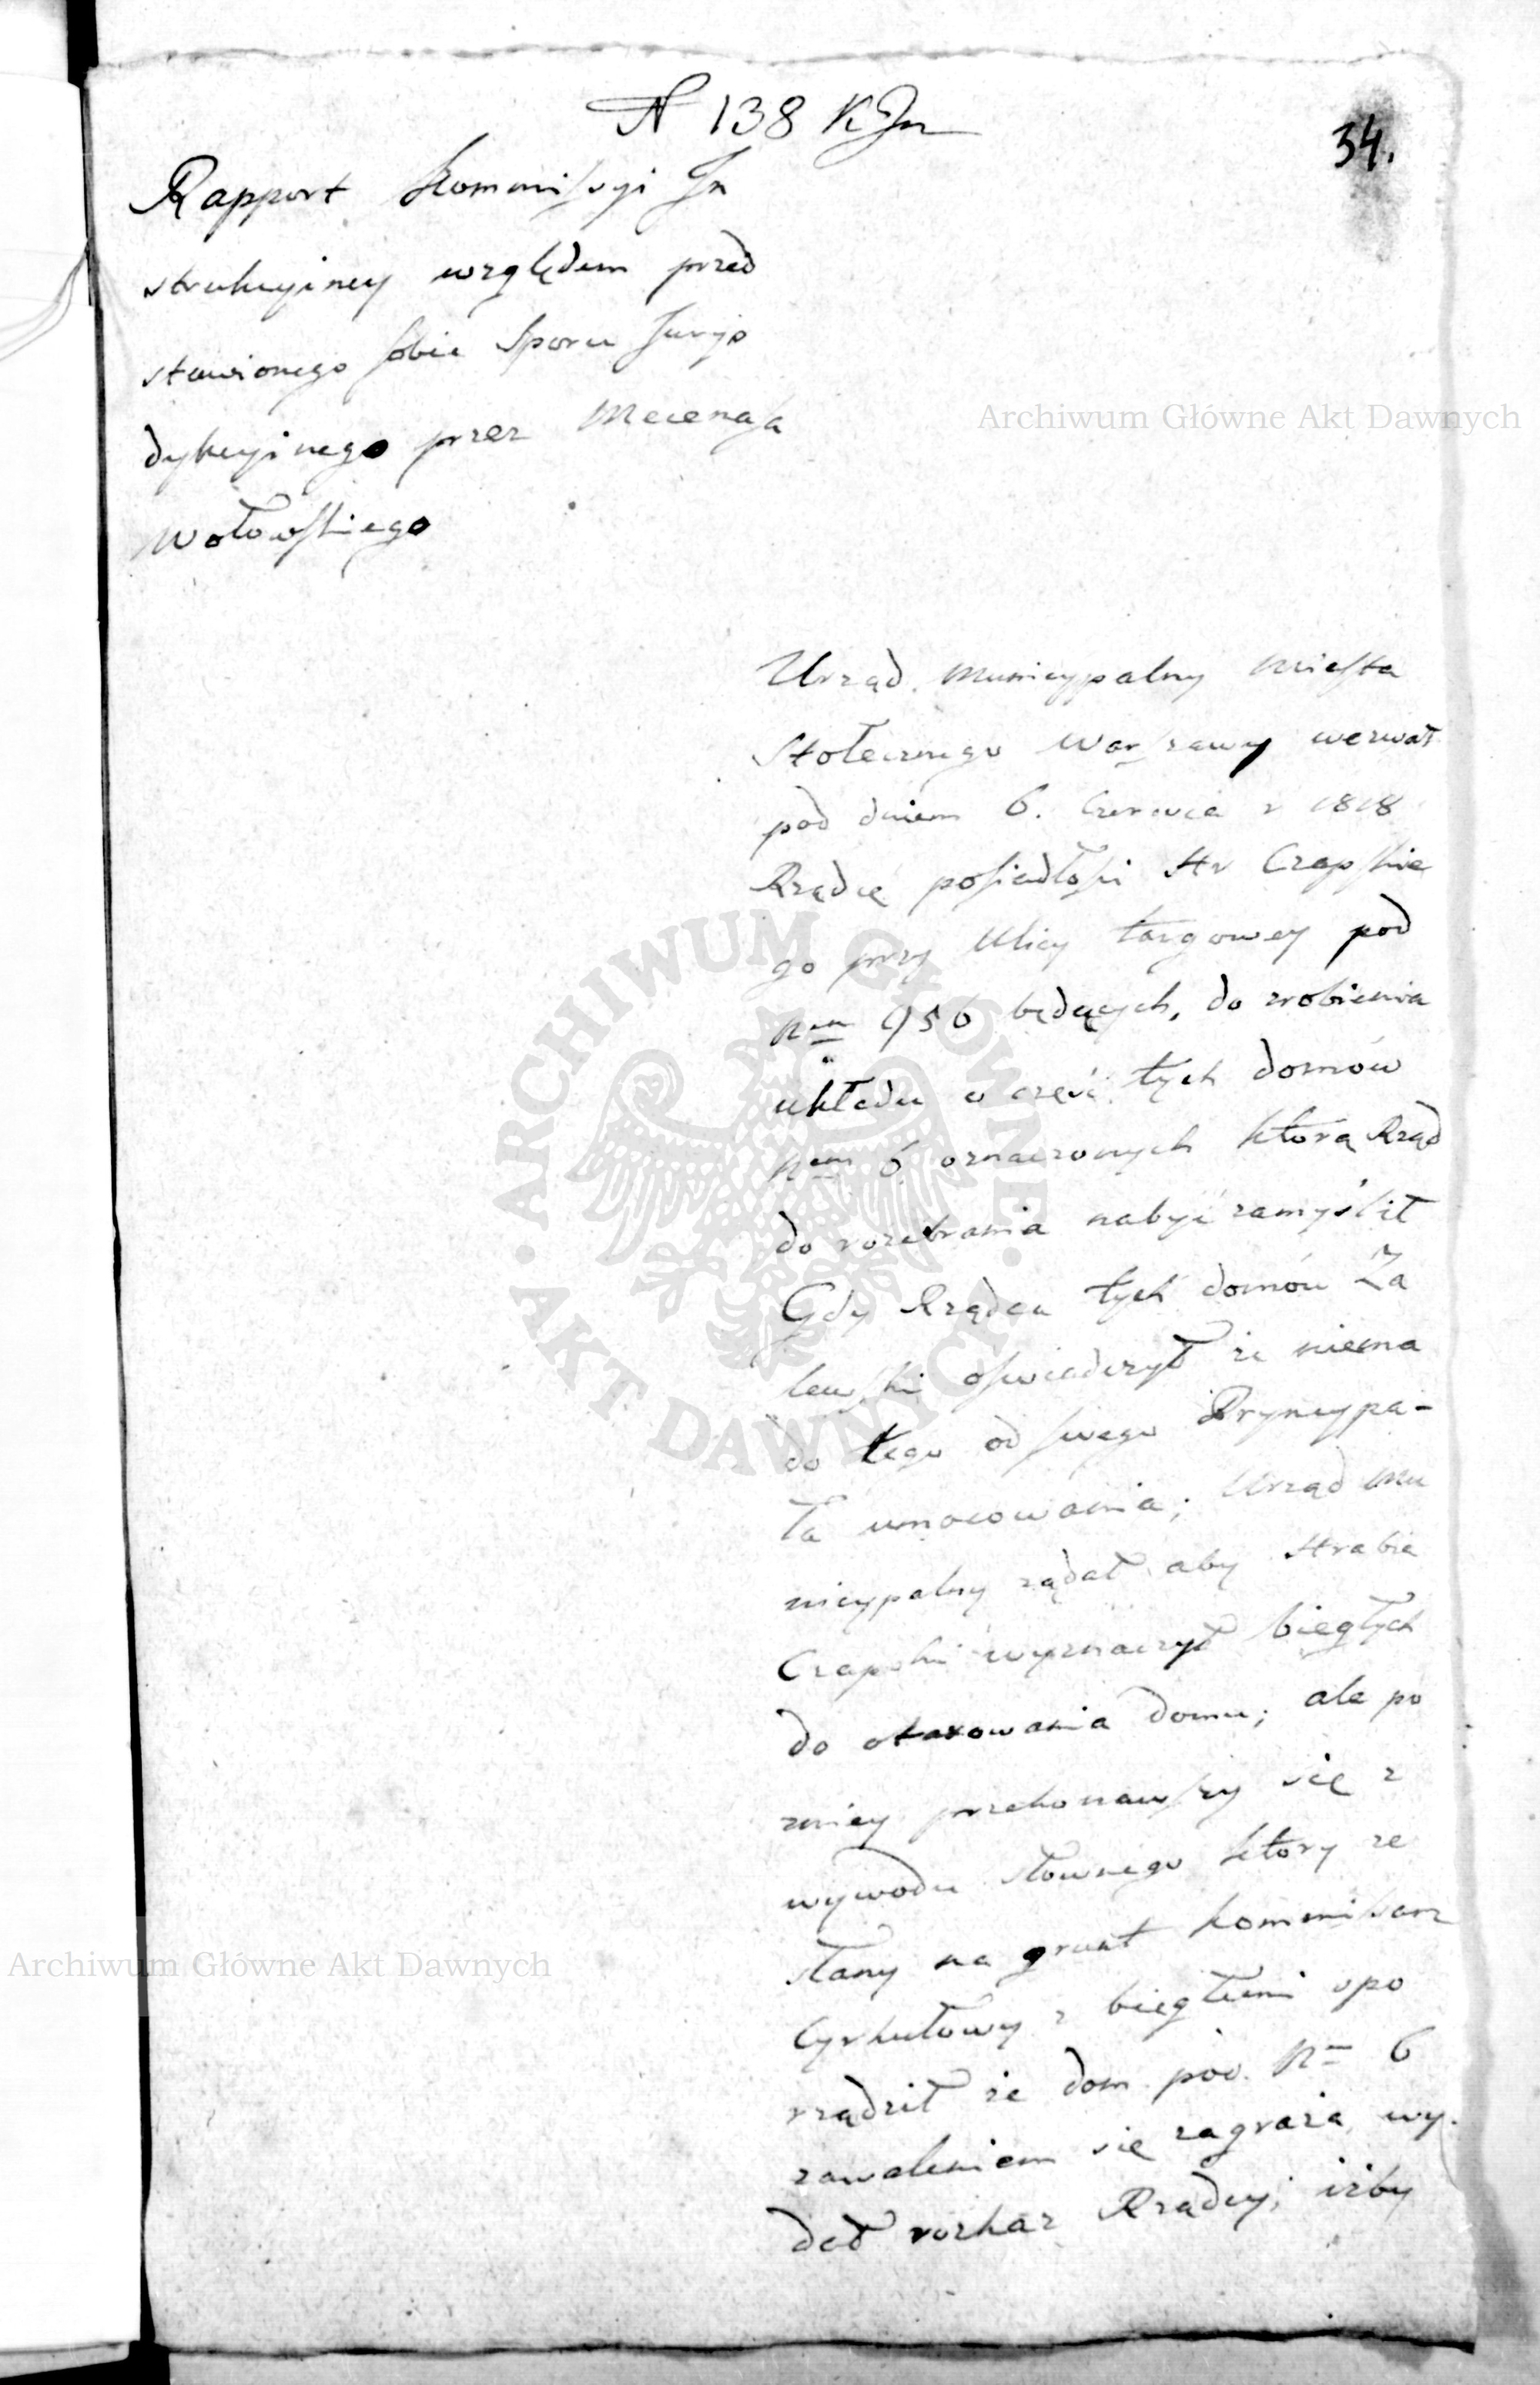 N 138 K Jn
34.
Rapport Kommissyi In
strukcyiney względem przed
stawionego sobie Sporu Jurys
dykcyinego przez Mecenasa
Wołowskiego
Urząd Municypalny Miasta
Stołecznego Warszawy wezwał
pod dniem 6. Czerwca r 1818
Rządcę posiadłości Hr Czapskie
go przy Ulicy targowey pod
Nem 956 będących, do zrobienia
układu o część tych domów
Nem 6 oznaczonych którą Rząd
do rozebrania nabyć zamyślił
Gdy Rządca tych domów Za
lewski oświadczył że niema
do tego od swego Pryncypa-
ła umocowania; Urząd Mu
nicypalny żądał aby Hrabia
Czapski wyznaczył biegłych
do otaxowania domu; ale po
zniey przekonawszy się z
wywodu słownego który ze
słany na grunt Kommissarz
Cyrkułowy z biegłemi spo
rządził że dom pod Nm 6
zawaleniem się zagraża, wy
dał rozkaz Rządcy, iżby
Archiwum Główne Akt Dawnych
ARCHIWUM GŁÓWNE AKT DAWNYCH
Archiwum Główne Akt Dawnych